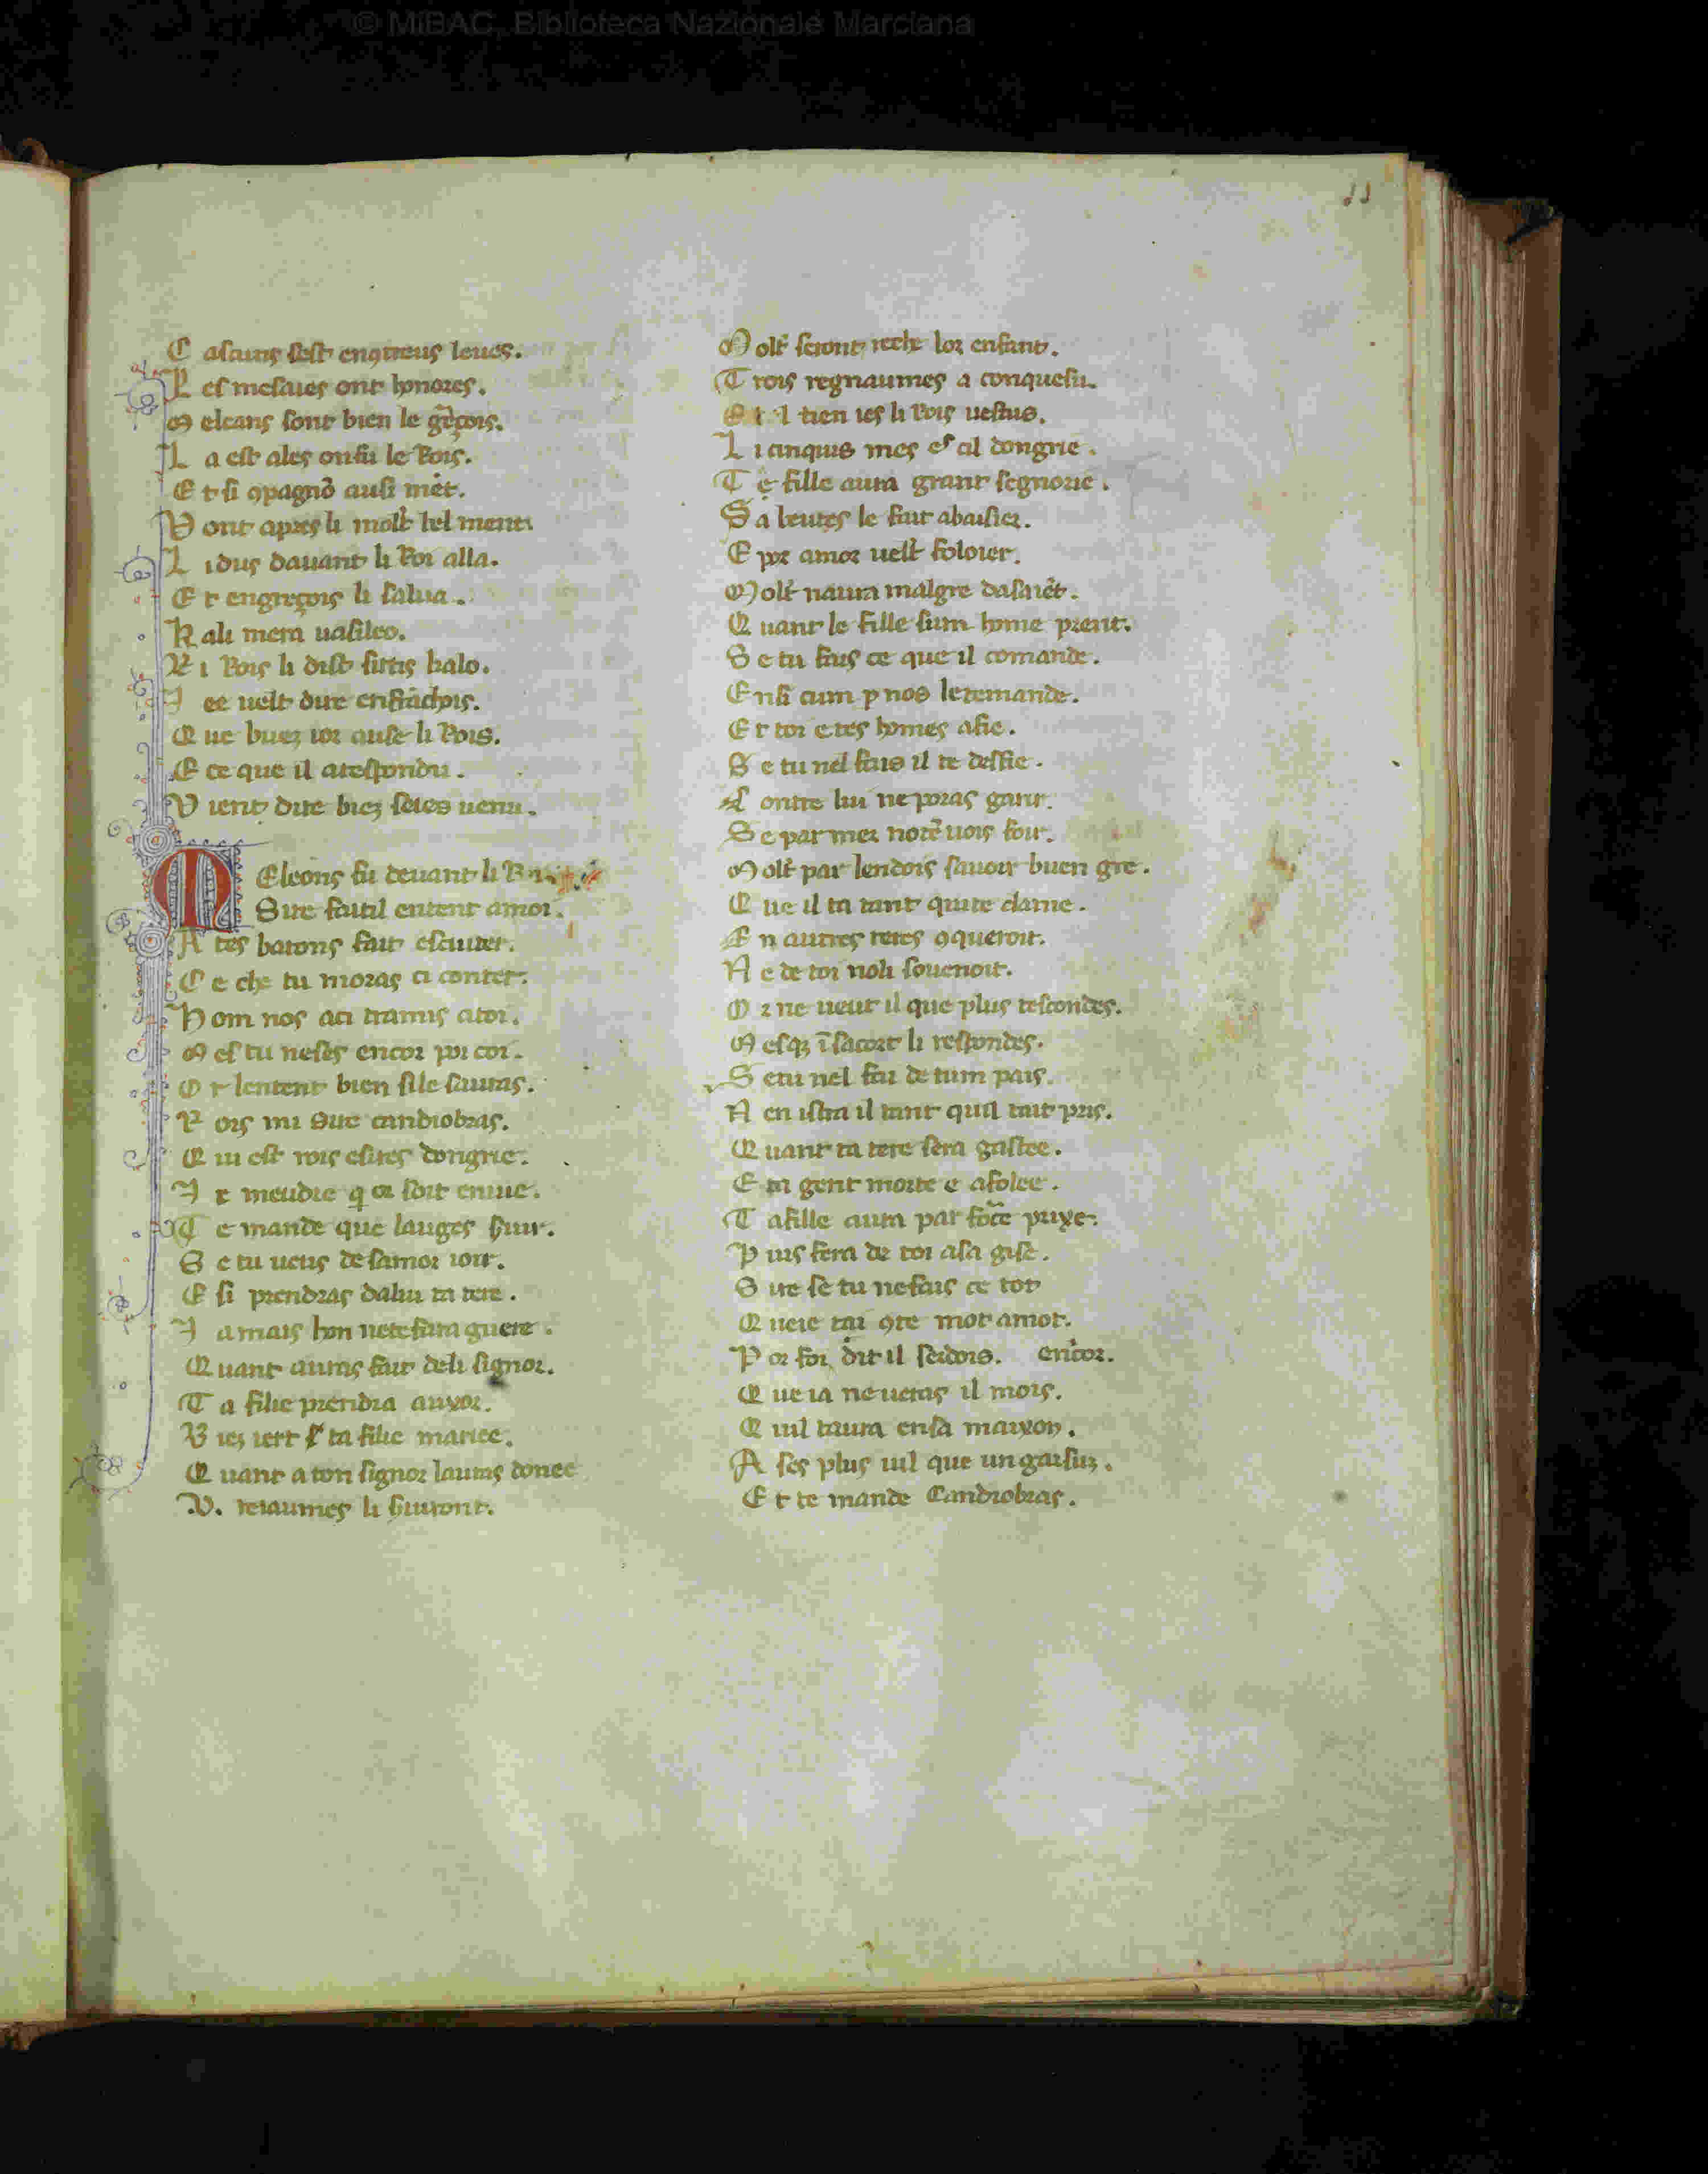 © MiBAC, Biblioteca Nazionale Marciana
11
C ascuns sest enqtreus leues.
L es mesaies ont honores.
M elcans sont bien le grẽçois.
L a est ales on fu le Rois.
E t si 9pagnõ ausi mẽt.
V ont apres li molt bel ment.
L i dus dauant li Roi alla.
E t engreçois li salua.
K ali mera uasileo.
L i Rois li dist sirtis kalo.
J ce uelt dire enfrãchois.
Q ue buez ior ouse li Rois.
E ce que il a respondu.
V ient dire biez seies uenu.
M Eleons fu deuant li
Sire fait il entent a moi.
A tes barons fait escuter.
C e che tu moras ci conter.
H om nos a ci tramis a toi.
M es tu neses encor por coi.
O r lentent bien si le sauras.
R ois mi Sire candiobras.
Q ui est rois esires dongrie.
J e meudre q or soit enuie.
T e mande que lauges seruir.
S e tu ueus de samor ioir.
E si prendras daluu ta tere.
J amais hon ne te fara guere.
Q uant auras fait deli signor.
T a fille prendra auxor.
B iez iert ta fille mariee.
Q uant a ton signor lauras donee
.V. reiaumes li siruront.
M olt seront reche lor enfant.
T rois regnaumes a conquesu.
tien ies li Rois uestus.
L i cinquis mes es cil dongrie.
T e fille aura grant segnorie.
S a beutes le fait abaisier.
E por amor uelt foloier.
M olt naura malgre dasaiẽt.
Q uant le fille sum home prent.
S e tu fais ce que il comande.
E nsi cum p nos le temande.
E t toi e tes homes afie.
S e tu nel fais il te deffie.
C ontre lui ne poras garir.
S e par mer notẽ uois foir.
M olt par lendois sauoir buen gre.
Q ue il ta tant quite clame.
E n autres teres 9queroit.
N e de toi noli souenoit.
O r ne ueut il que plus tescondes.
M esq; ĩsacort li respondes.
S etu nel fai de tum pais.
N en istra il tant quil tait pris.
Q uant ta tere sera gastee.
E ta gent morte e afolee.
T afille aura par forẽ prixe.
P uis fera de toi asa gise.
S ire se tu nefais ce tot
Q ueie tai 9te mot amot.
P or foi dit il seidois. encor.
Q ue ia ne ueras il mois.
Q uil taura ensa maixon.
A ses plus uil que un garsuz.
E t te mande Candiobras.